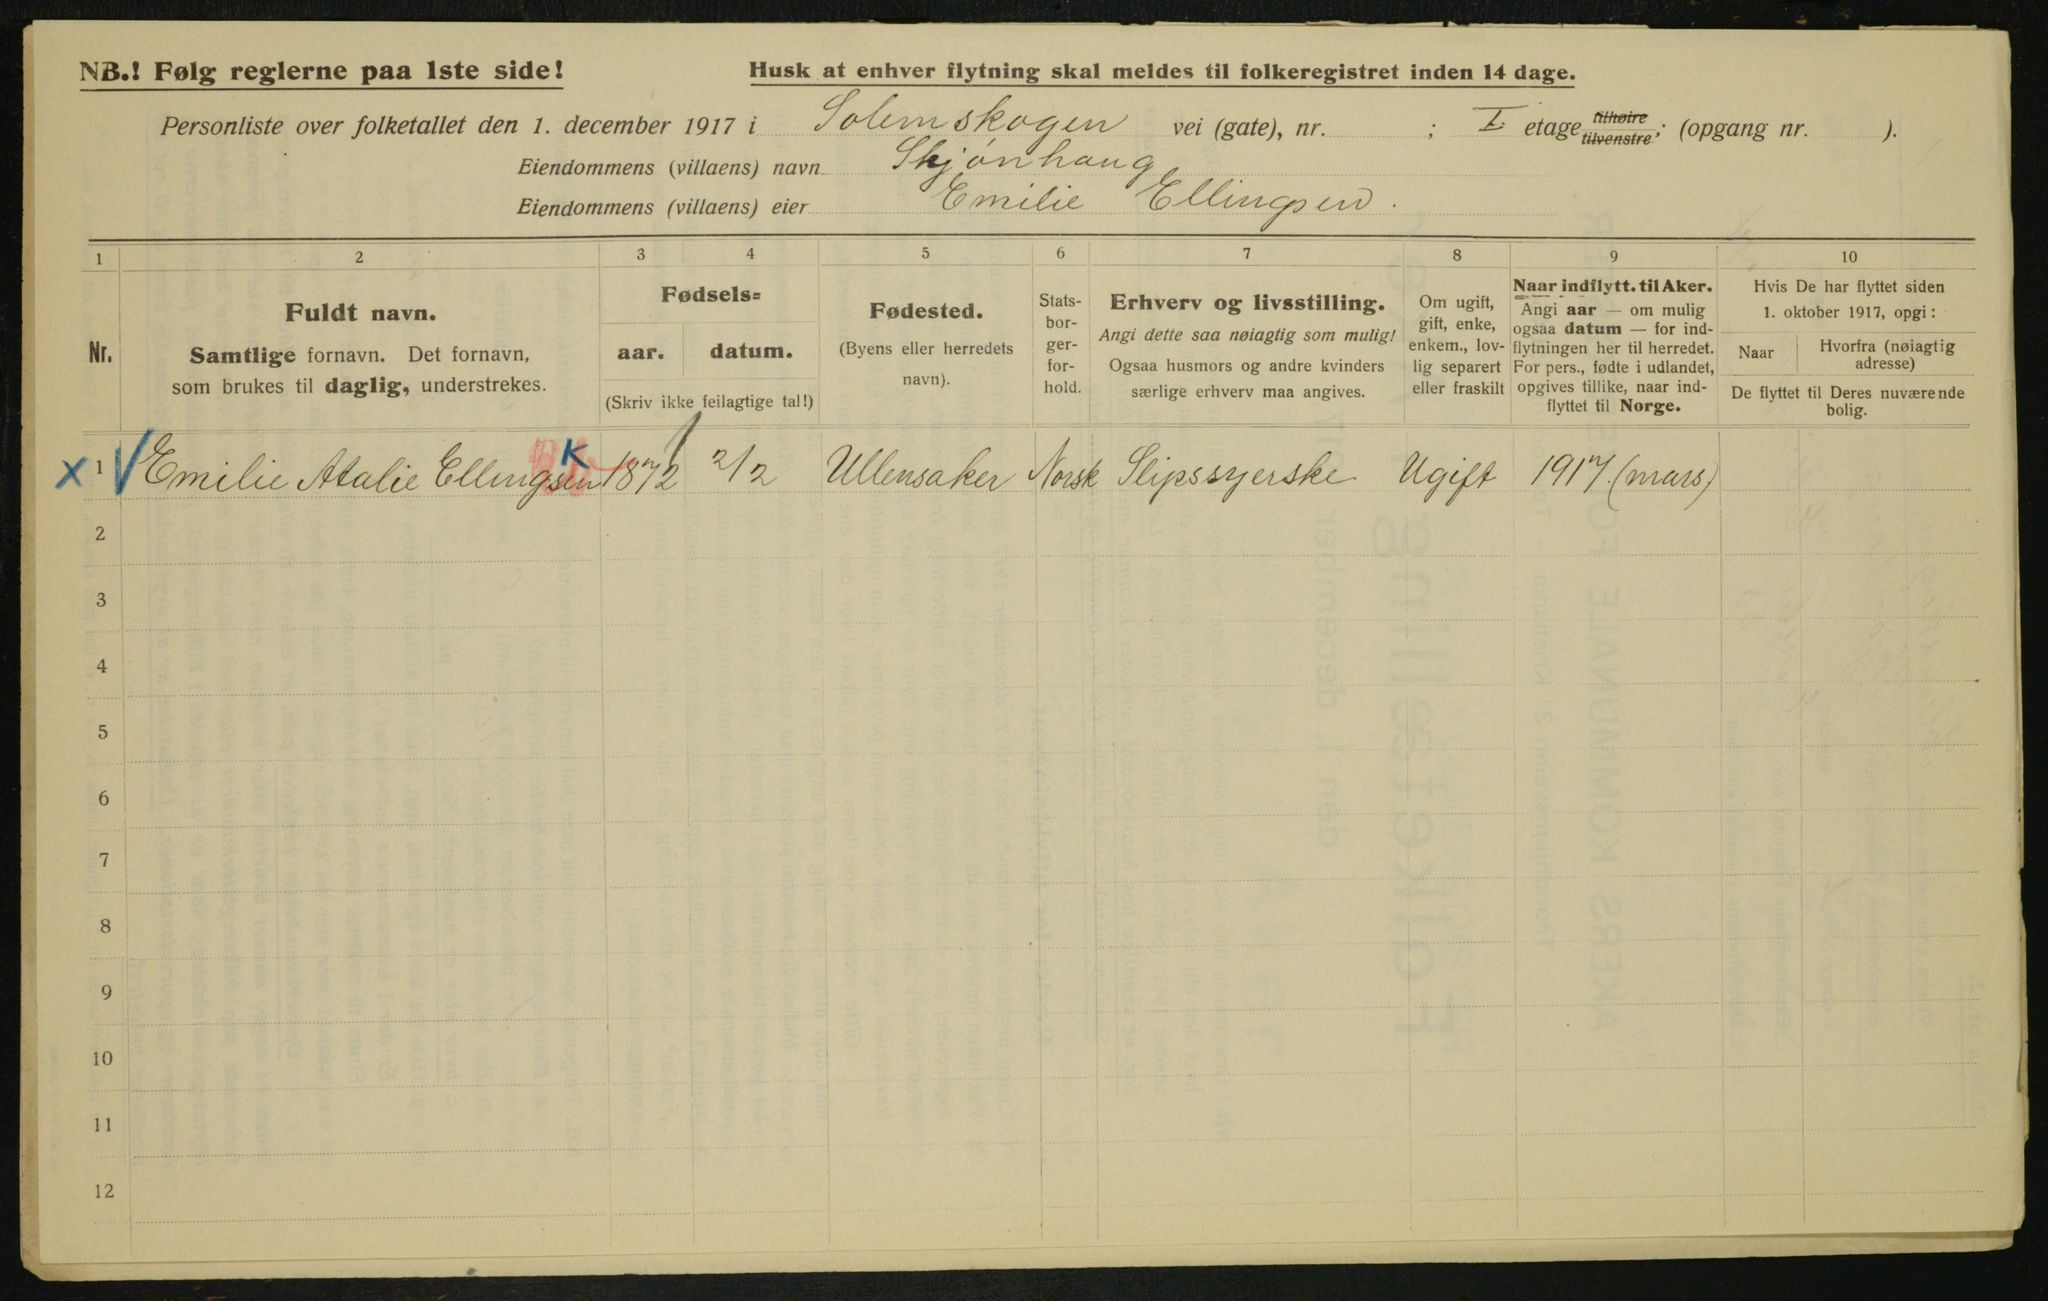 NB.! Følg reglerne paa 1ste side!
Husk at enhver flytning skal meldes til folkeregistret inden 14 dage.
Personliste over folketallet den 1. december 1917 i Solemskogen vei (gate), nr. ; I etage tilhøire tilvenstre; (opgang nr. ).
Eiendommens (villaens) navn Skjønhaug
Eiendommens (villaens) eier Emilie Ellingsen.
1 2 3 4 5 6 7 8 9 10
Nr.
Fuldt navn.
Samtlige fornavn. Det fornavn,
som brukes til daglig, understrekes.
Fødsels=
aar. datum.
(Skriv ikke feilagtige tal!)
Fødested.
(Byens eller herredets
navn).
Stats-
bor-
ger-
for-
hold.
Erhverv og livsstilling.
Angi dette saa nøiagtig som mulig!
Ogsaa husmors og andre kvinders
særlige erhverv maa angives.
Om ugift,
gift, enke,
enkem., lov-
lig separert
eller fraskilt
Naar indflytt. til Aker.
Angi aar — om mulig
ogsaa datum — for ind-
flytningen her til herredet.
For pers., fødte i udlandet,
opgives tillike, naar ind-
flyttet til Norge.
Hvis De har flyttet siden
1. oktober 1917, opgi:
Naar
Hvorfra (nøiagtig
adresse)
De flyttet til Deres nuværende
bolig.
x 1 Emilie Atalie Ellingsen K 1872 2/2 Ullensaker Norsk Slipssyerske Ugift 1917. (mars)
2
3
4
5
6
7
8
9
10
11
12